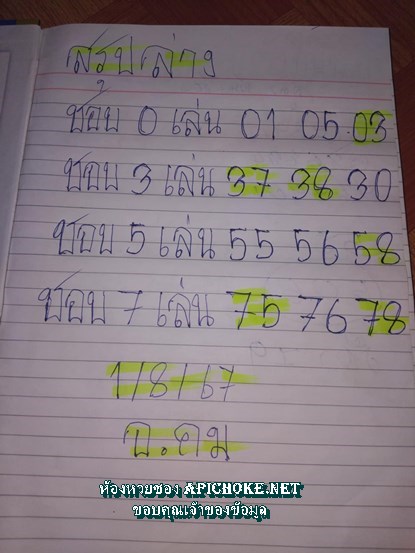 สรุป ล่าง
ชอบ 0 เล่น 01 05 03
ชอบ 3 เล่น 37 38 30
ชอบ 5 เล่น 55 56 58
ชอบ 7 เล่น 75 76 78
1/8/67
อ.คม
ห้องหวยซอง APICHOKE.NET
ขอบคุณเจ้าของข้อมูล